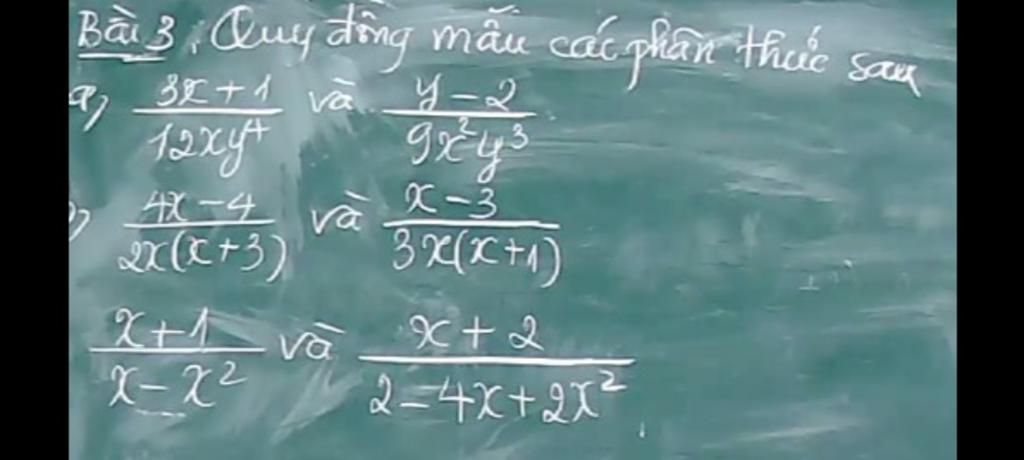 Bài 3. Quy đồng mẫu các phân thức sau
a, (3x + 1)/(12xy⁴) và (y - 2)/(9x²y³)
(4x - 4)/(2x(x+3)) và (x - 3)/(3x(x+1))
(x + 1)/(x - x²) và (x + 2)/(2 - 4x + 2x²)